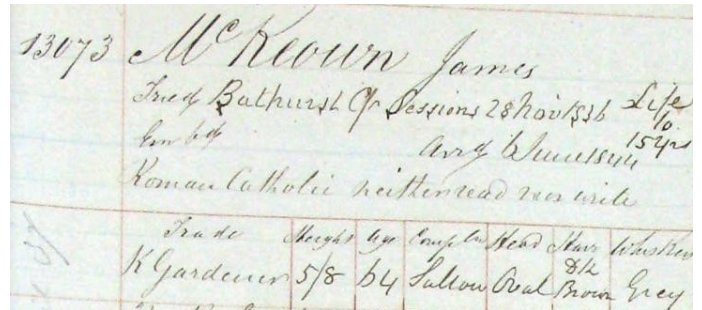 13073 McKeown James
Tried Bathurst Qr Sessions 28 Nov 1836 Life
to
Embd Arrd 6 June 1844 15 yrs
Roman Catholic neither read nor write
Trade Height Age Compln Head Hair Whiskers
K Gardener 5/8 64 Sallow Oval Dk Brown Grey